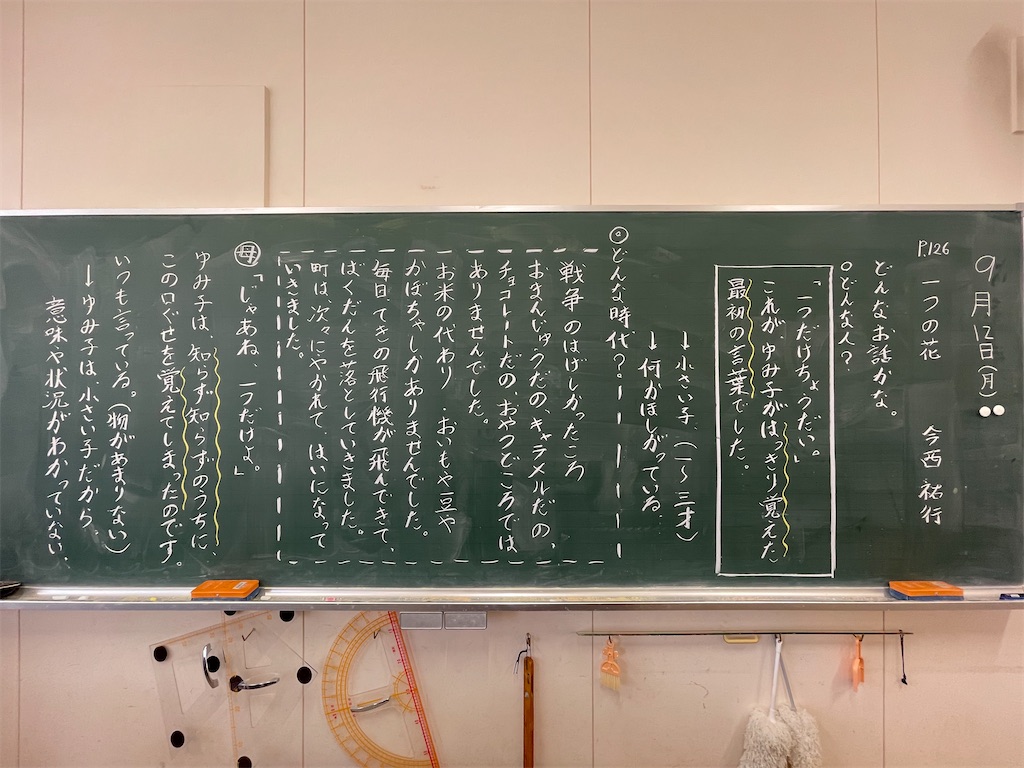 9月12日(月)
P.126
一つの花　今西 祐行
どんなお話かな。
○どんな人?
「一つだけちょうだい。」
これが、ゆみ子がはっきり覚えた
最初の言葉でした。
→小さい子、(一~三才)
→何かほしがっている
◎どんな時代?
戦争のはげしかったころ
おまんじゅうだの、キャラメルだの、
チョコレートだの、おやつどころでは
ありませんでした。
お米の代わり・おいもや豆や
かぼちゃしかありませんでした。
毎日、てきの飛行機が飛んできて、
ばくだんを落としていきました。
町は、次々にやかれて、はいになって
いきました。
母「じゃあね、一つだけよ。」
ゆみ子は、知らず知らずのうちに、
この口ぐせを覚えてしまったのです。
いつも言っている。(物があまりない)
→ゆみ子は、小さい子だから、
意味や状況がわかっていない